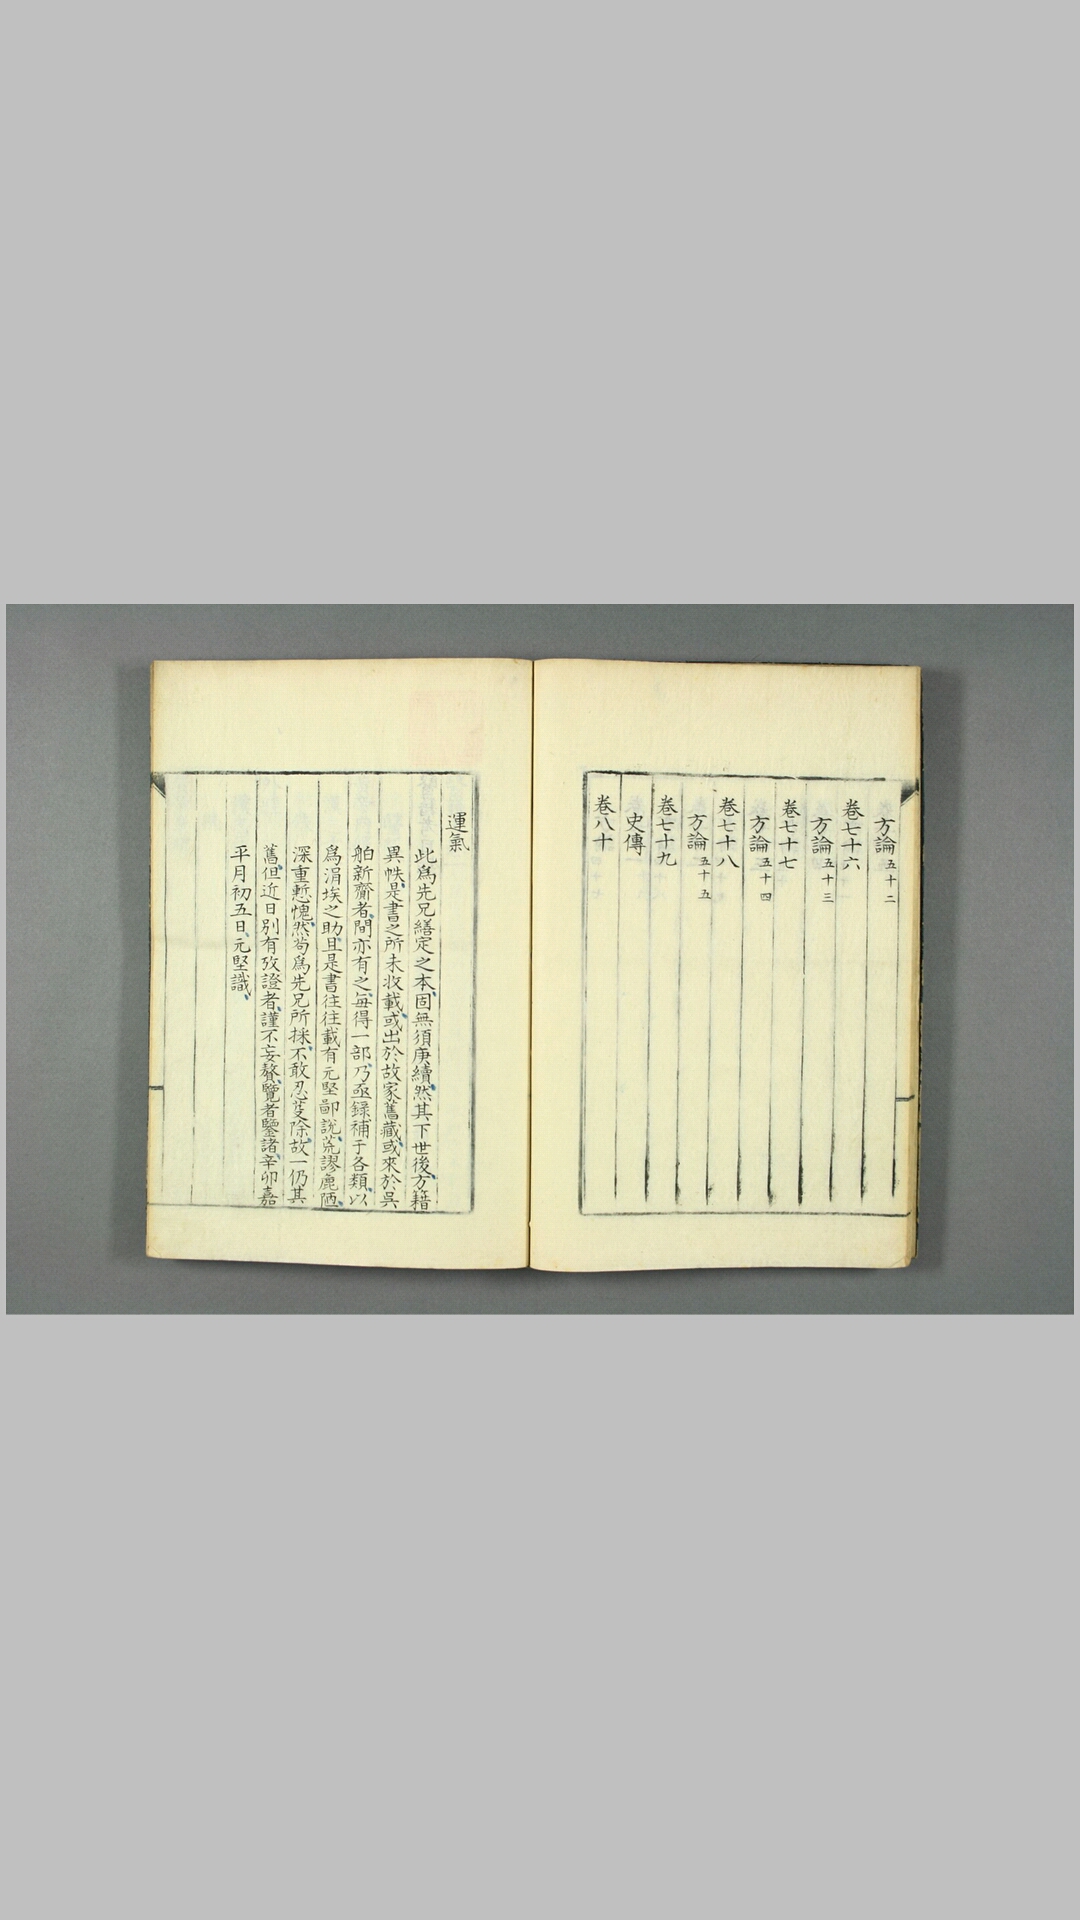 方論五十二
卷七十六
方論五十三
卷七十七
方論五十四
卷七十八
方論五十五
卷七十九
史傳
卷八十
運氣
此爲先兄繕定之本、固無須庚續、然其下世後、方籍
異帙、是書之所未收載、或出於故家舊藏、或來於吳
舶新齎者、間亦有之、每得一部、乃亟錄補于各類、以
爲涓埃之助、且是書往往載有元堅鄙說、荒謬麁陋、
深重慙愧、然苟爲先兄所採、不敢忍芟除、故一仍其
舊、但近日別有攷證者、謹不妄贅、覽者鑒諸、辛卯嘉
平月初五日、元堅識、